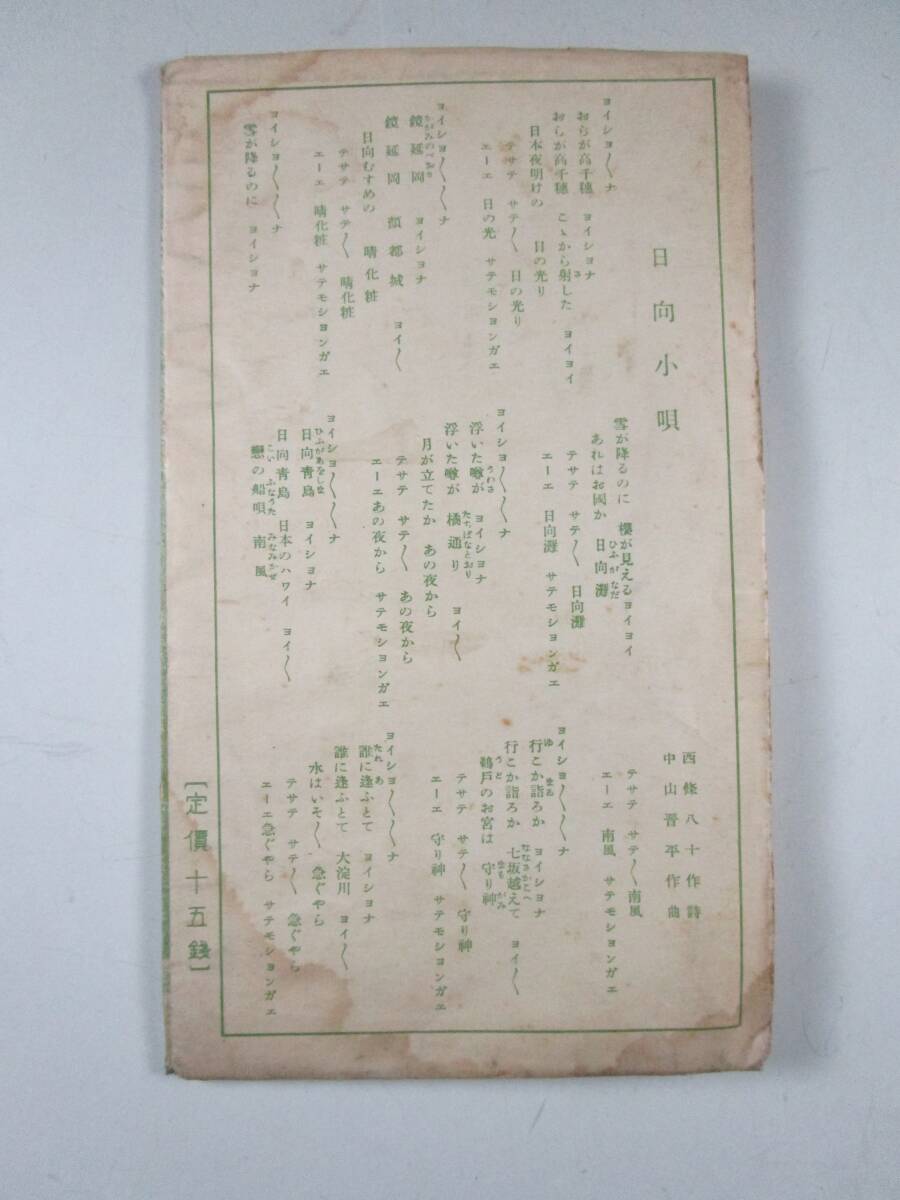 日向小唄
西條八十作詩
中山晋平作曲
ヨイショ〱〱ナ
おらが高千穂 ヨイショナ
おらが高千穂 こゝから射した ヨイヨイ
日本夜明けの 日の光り
テサテ サテ〱 日の光り
エーエ 日の光 サテモションガエ
ヨイショ〱〱〱ナ
鏡延岡 ヨイショナ
鏡延岡 顔都城 ヨイ〱
日向むすめの 晴化粧
テサテ サテ〱 晴化粧
エーエ 晴化粧 サテモションガエ
ヨイショ〱〱〱ナ
雪が降るのに ヨイショナ
雪が降るのに 櫻が見えるヨイヨイ
あれはお國か 日向灘
テサテ サテ〱 日向灘
エーエ 日向灘 サテモションガエ
ヨイショ〱〱〱ナ
浮いた噂が ヨイショナ
浮いた噂が 橘通り ヨイ〱
月が立てたか あの夜から
テサテ サテ〱 あの夜から
エーエあの夜から サテモションガエ
ヨイショ〱〱〱ナ
日向青島 ヨイショナ
日向青島 日本のハワイ ヨイ〱
戀の船唄 南風
テサテ サテ〱 南風
エーエ 南風 サテモションガエ
ヨイショ〱〱〱ナ
行こか詣ろか ヨイショナ
行こか詣ろか 七坂越えて ヨイ〱
鵜戸のお宮は 守り神
テサテ サテ〱 守り神
エーエ 守り神 サテモションガエ
ヨイショ〱〱〱ナ
誰に逢ふとて ヨイショナ
誰に逢ふとて 大淀川 ヨイ〱
水はいそ〱 急ぐやら
テサテ サテ〱 急ぐやら
エーエ急ぐやら サテモションガエ
[定價十五錢]